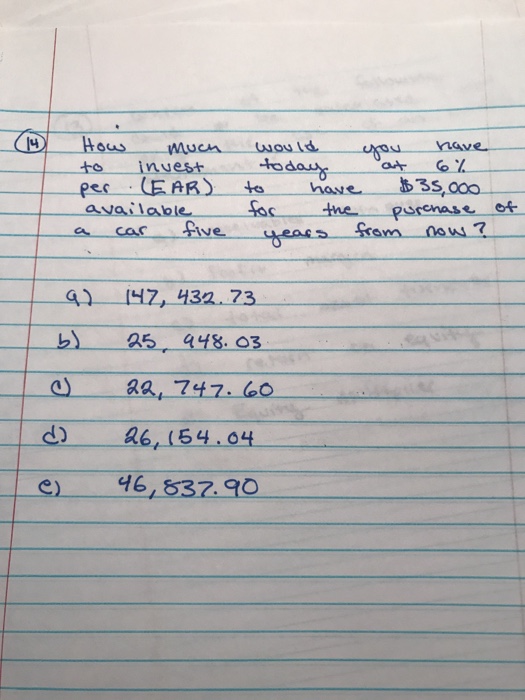 14 How much would you have
to invest today at 6%
per (EAR) to have $35,000
available for the purchase of
a car five years from now?
a) 147,432.73
b) 25,948.03
c) 22,747.60
d) 26,154.04
e) 46,837.90